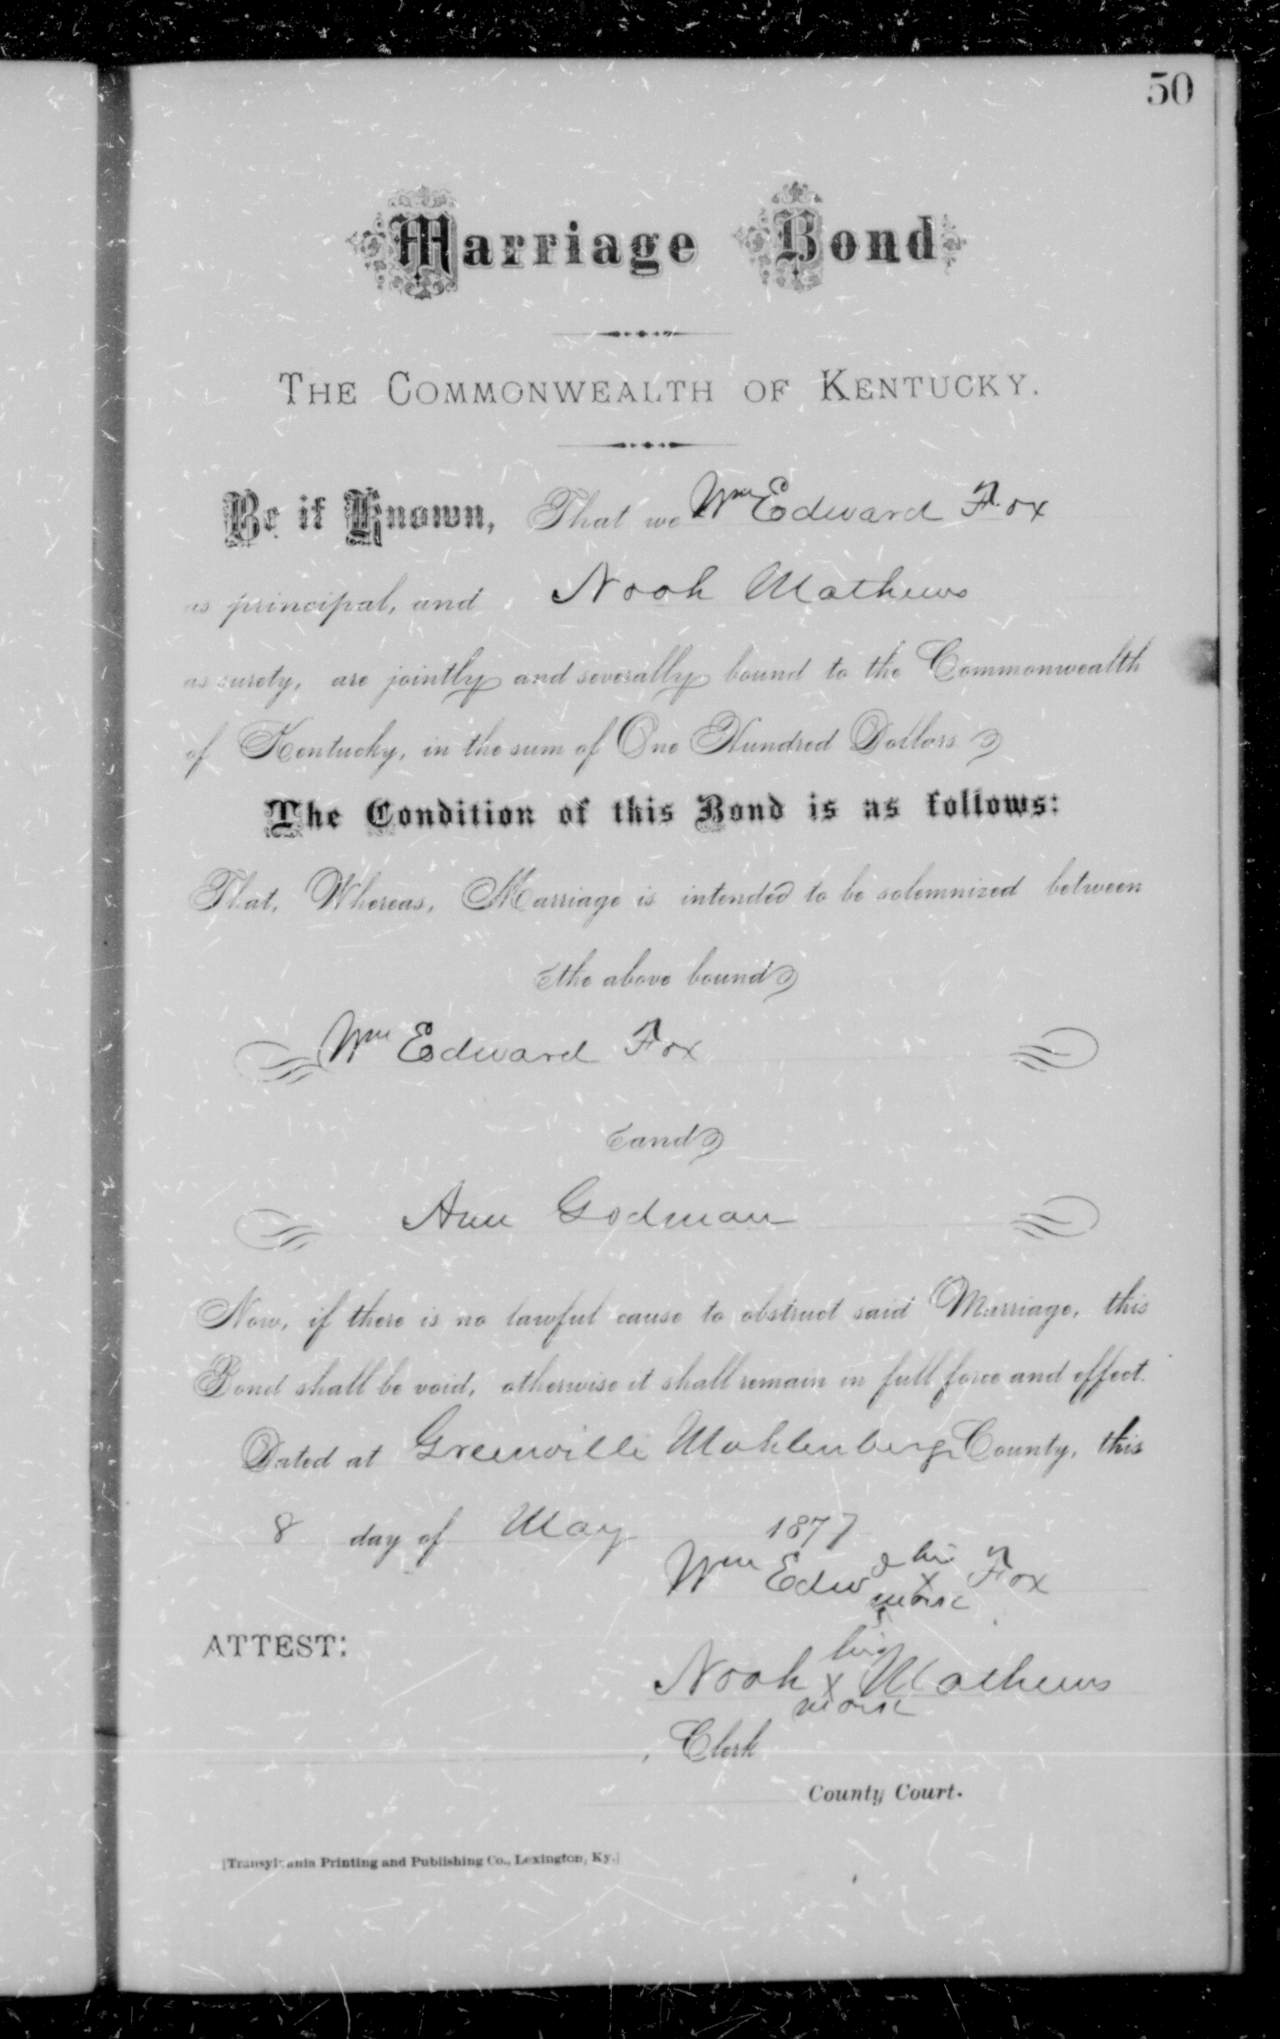 50
Marriage Bond
THE COMMONWEALTH OF KENTUCKY.
Be it Known, That we Wm Edward Fox
as principal, and Noah Mathews
as surety, are jointly and severally bound to the Commonwealth
of Kentucky, in the sum of One Hundred Dollars
The Condition of this Bond is as follows:
That, Whereas, Marriage is intended to be solemnized between
the above bound
Wm Edward Fox
and
Ann Godman
Now, if there is no lawful cause to obstruct said Marriage, this
Bond shall be void, otherwise it shall remain in full force and effect.
Dated at Greenville Muhlenberg County, this
8 day of May 1877
his
Wm Edwd x Fox
mark
ATTEST:
his
Noah x Mathews
mark
, Clerk
County Court.
[Transylvania Printing and Publishing Co., Lexington, Ky.]